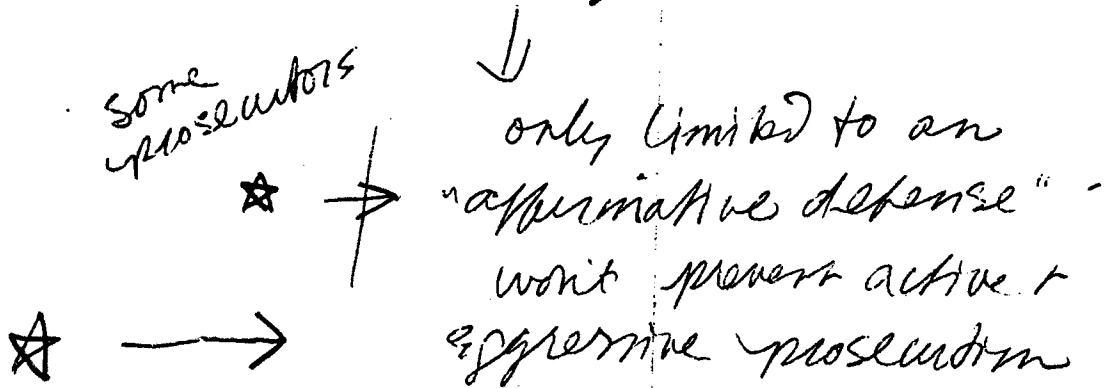 some
prosecutors
only limited to an
"affirmative defense" -
won't prevent active +
aggressive prosecution